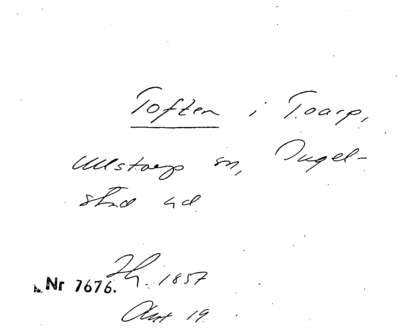 Toften i Toarp,
Ullstorp sn, Ingel-
stad hd
Nr 7676. 1857
Akt 19.